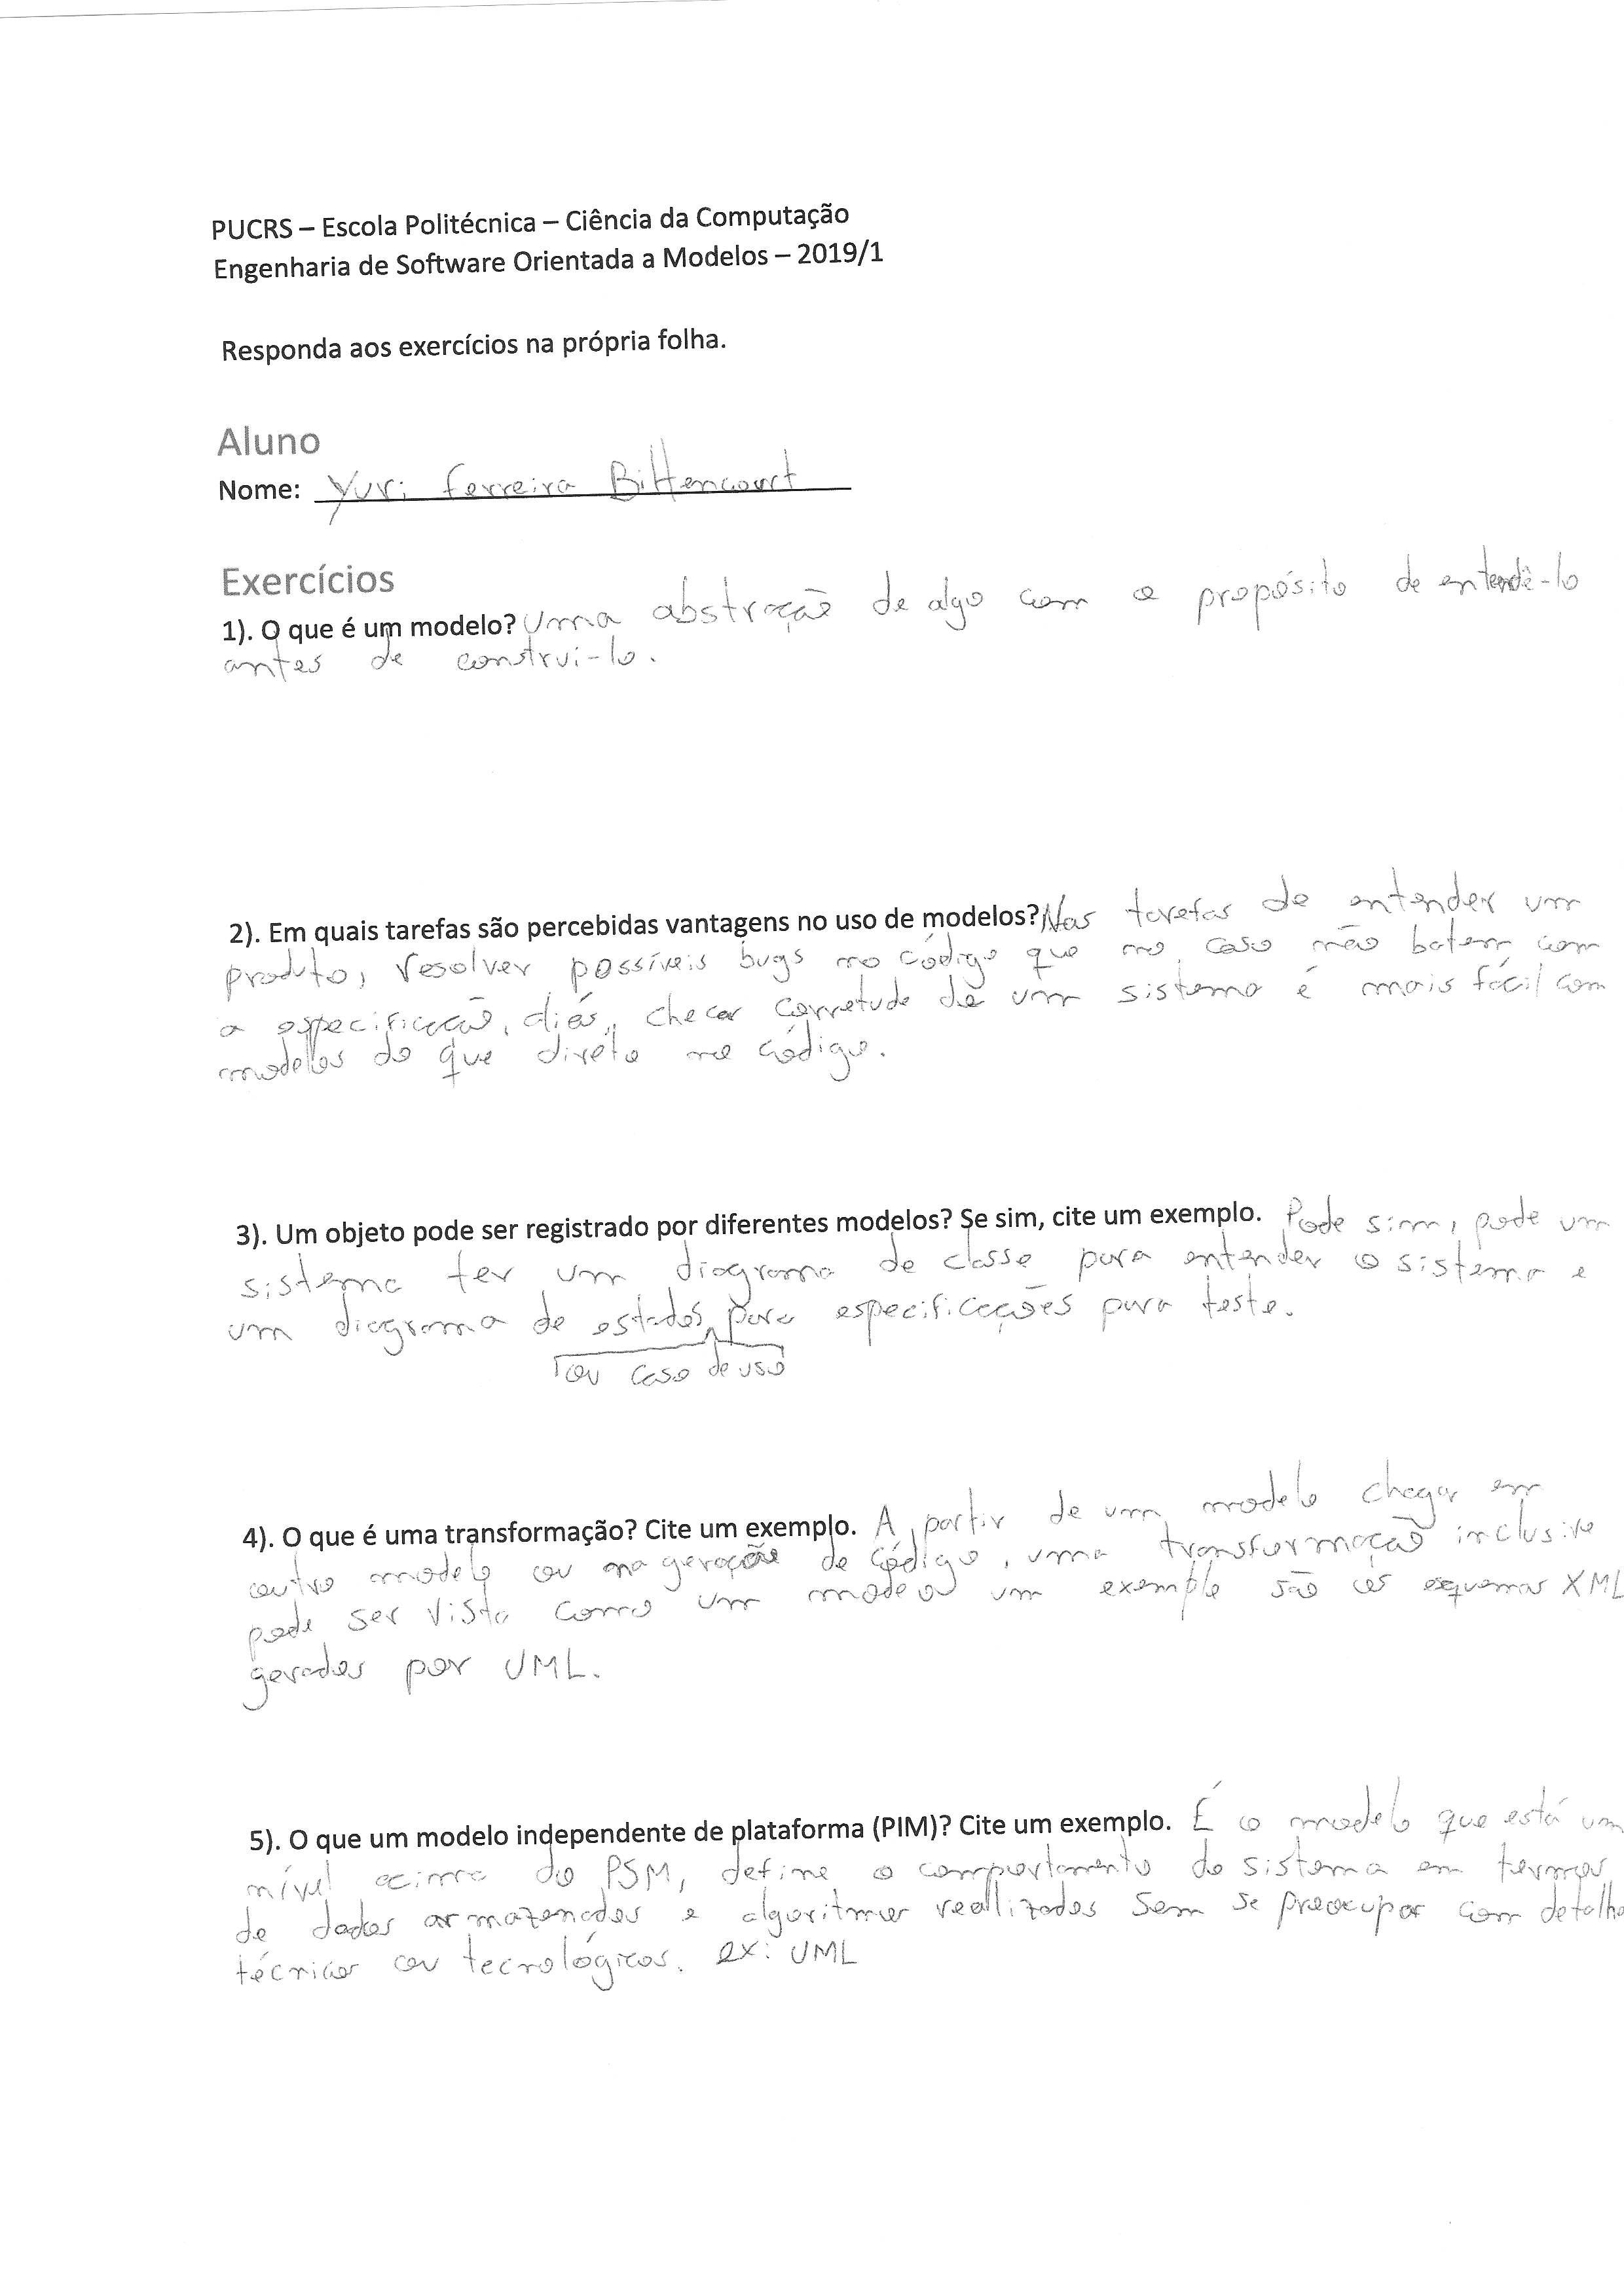 PUCRS – Escola Politécnica – Ciência da Computação
Engenharia de Software Orientada a Modelos – 2019/1
Responda aos exercícios na própria folha.
Aluno
Nome: Yuri Ferreira Bittencourt
Exercícios
1). O que é um modelo? Uma abstração de algo com o propósito de entendê-lo
antes de construi-lo.
2). Em quais tarefas são percebidas vantagens no uso de modelos? Nas tarefas de entender um
produto, resolver possíveis bugs no código que no caso não batem com
a especificação, aliás, checar corretude de um sistema é mais fácil com
modelos do que direto no código.
3). Um objeto pode ser registrado por diferentes modelos? Se sim, cite um exemplo. Pode sim, pode um
sistema ter um diagrama de classe para entender o sistema e
um diagrama de estados para especificações para teste.
ou caso de uso
4). O que é uma transformação? Cite um exemplo. A partir de um modelo chegar em
outro modelo ou na geração de código, uma transformação inclusive
pode ser vista como um modelo um exemplo são os esquemas XML
gerados por UML.
5). O que um modelo independente de plataforma (PIM)? Cite um exemplo. É o modelo que está um
nível acima do PSM, define o comportamento do sistema em termos
de dados armazenados e algoritmos reallizados sem se preocupar com detalhe
técnicos ou tecnológicos. ex: UML